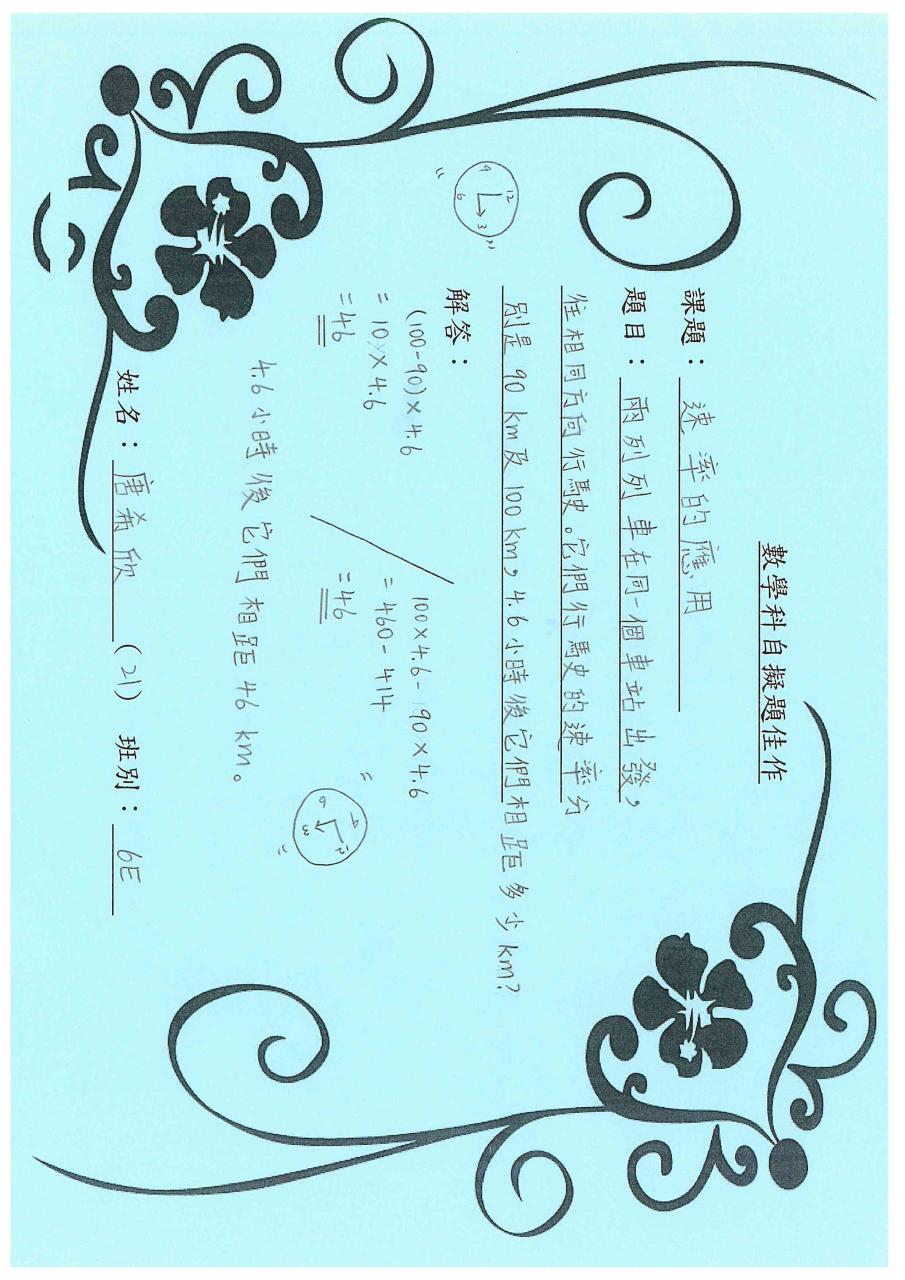 數學科自擬題佳作
課題：速率的應用
題目：兩列列車在同一個車站出發，
往相同方向行駛。它們行駛的速率分
別是90 km及100 km，4.6小時後它們相距多少km?
解答：
(100-90)×4.6
= 10×4.6
= 46
100×4.6-90×4.6
= 460-414
= 46
4.6小時後它們相距46 km。
姓名：唐希欣 (21) 班別：6E
12
3
6
9
12
3
6
9